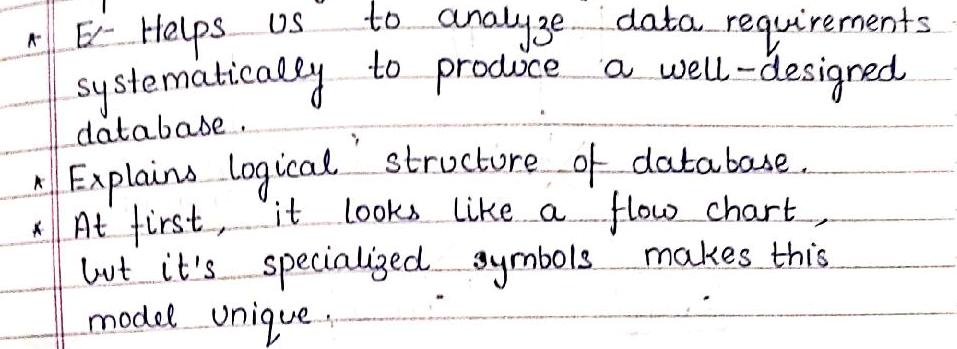 * E- Helps us to analyze data requirements
systematically to produce a well-designed
database.
* Explains logical structure of database.
* At first, it looks like a flow chart,
but it's specialized symbols makes this
model unique.